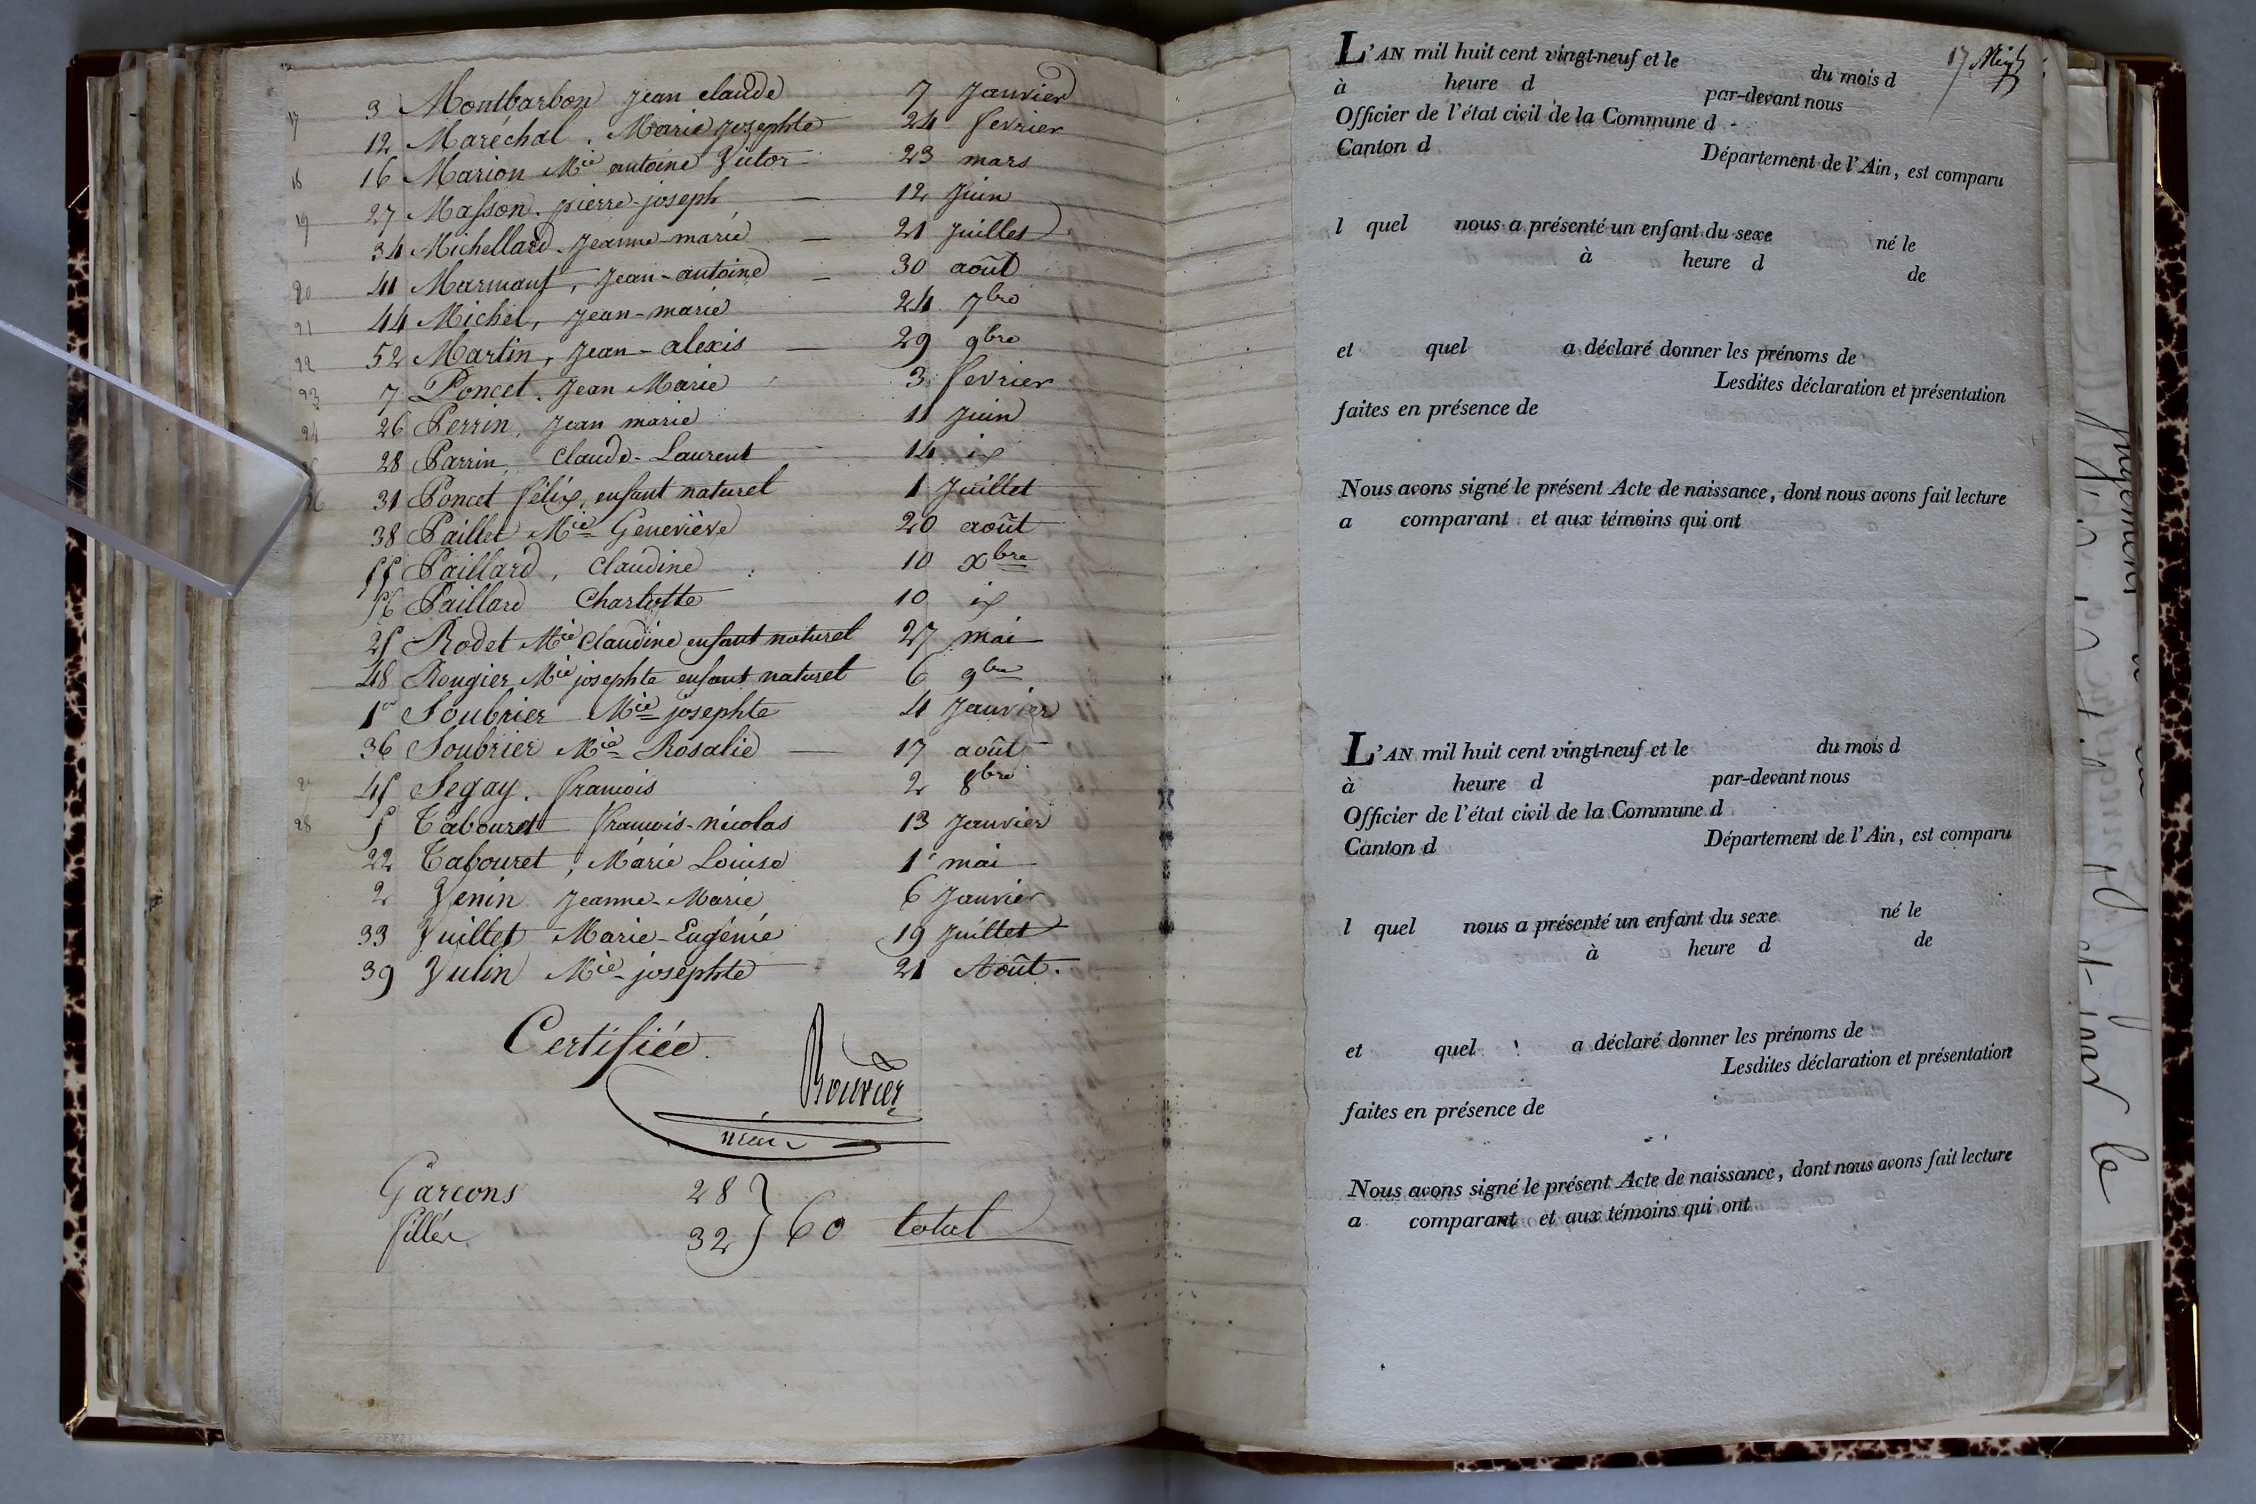 17 3 Montbarbon jean claude 7 Janvier
12 Maréchal. Marie Josephte 24 fevrier
18 16 Marion Mie antoine Victor 23 mars
19 27 Masson. pierre-joseph — 12 Juin
34 Michellard. Jeanne-marie — 21 Juillet
20 41 Marmant, Jean-antoine — 30 août
21 44 Michel, Jean-marie 24 7bre
22 52 Martin, Jean-alexis — 29 9bre
23 7 Poncet. Jean Marie 3 fevrier
24 26 Perrin, Jean marie 11 Juin
28 Parrin, Claude-Laurent 14 ix
31 Poncet félix, enfant naturel 1 Juillet
38 Paillet Mie Geneviève 20 août
55 Paillard, Claudine 10 Xbre
56 Paillard Charlotte 10 ix
25 Rodet Mie Claudine enfant naturel 27 mai
48 Rougier Mie josephte enfant naturel 6 9bre
1er Soubrier Mie josephte 4 Janvier
36 Soubrier Mie Rosalie — 17 août
27 45 Segay. francois 2 8bre
28 5 Tabouret francois-nicolas 13 Janvier
22 Tabouret, Marie Louise 1er mai
2 Venin Jeanne-Marie 6 Janvier
33 Vuillet Marie-Eugénie 19 Juillet
39 Vulin Mie-josephte 21 Août.
Certifiée.
Bouvier
maire
Garcons 28
filles 32 } 60 total
17 
L'AN mil huit cent vingt-neuf et le du mois d
à heure d par-devant nous
Officier de l'état civil de la Commune d
Canton d Département de l'Ain, est comparu
l quel nous a présenté un enfant du sexe né le
à heure d de
et quel a déclaré donner les prénoms de
Lesdites déclaration et présentation
faites en présence de
Nous avons signé le présent Acte de naissance, dont nous avons fait lecture
a comparant et aux témoins qui ont
L'AN mil huit cent vingt-neuf et le du mois d
à heure d par-devant nous
Officier de l'état civil de la Commune d
Canton d Département de l'Ain, est comparu
l quel nous a présenté un enfant du sexe né le
à heure d de
et quel a déclaré donner les prénoms de
Lesdites déclaration et présentation
faites en présence de
Nous avons signé le présent Acte de naissance, dont nous avons fait lecture
a comparant et aux témoins qui ont